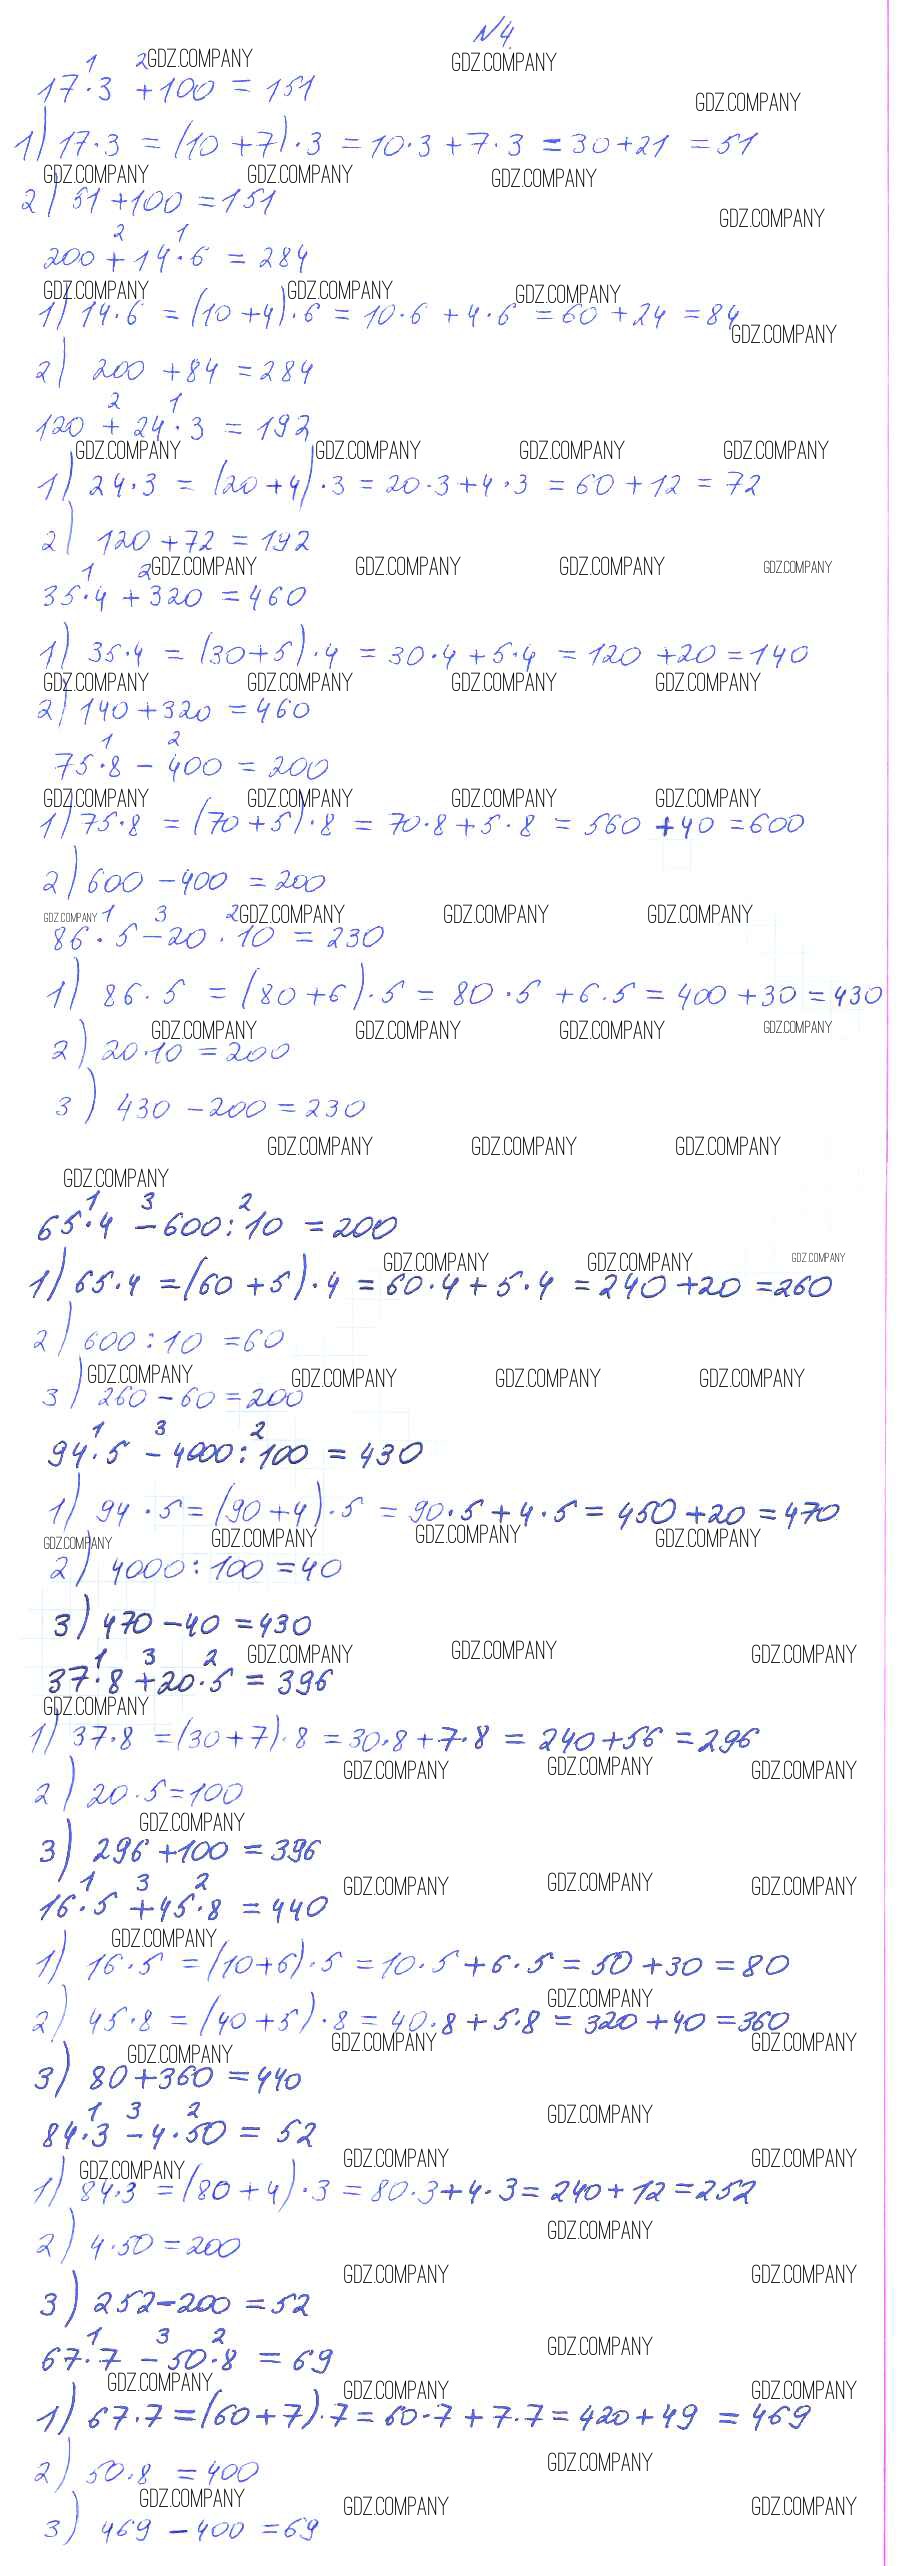 №4.
17·3 + 100 = 151
1) 17·3 = (10+7)·3 = 10·3 + 7·3 = 30+21 = 51
2) 51 + 100 = 151
200 + 14·6 = 284
1) 14·6 = (10+4)·6 = 10·6 + 4·6 = 60 + 24 = 84
2) 200 + 84 = 284
120 + 24·3 = 192
1) 24·3 = (20+4)·3 = 20·3 + 4·3 = 60 + 12 = 72
2) 120 + 72 = 192
35·4 + 320 = 460
1) 35·4 = (30+5)·4 = 30·4 + 5·4 = 120 + 20 = 140
2) 140 + 320 = 460
75·8 - 400 = 200
1) 75·8 = (70+5)·8 = 70·8 + 5·8 = 560 + 40 = 600
2) 600 - 400 = 200
86·5 - 20·10 = 230
1) 86·5 = (80+6)·5 = 80·5 + 6·5 = 400 + 30 = 430
2) 20·10 = 200
3) 430 - 200 = 230
65·4 - 600:10 = 200
1) 65·4 = (60+5)·4 = 60·4 + 5·4 = 240 + 20 = 260
2) 600:10 = 60
3) 260 - 60 = 200
94·5 - 4000:100 = 430
1) 94·5 = (90+4)·5 = 90·5 + 4·5 = 450 + 20 = 470
2) 4000:100 = 40
3) 470 - 40 = 430
37·8 + 20·5 = 396
1) 37·8 = (30+7)·8 = 30·8 + 7·8 = 240 + 56 = 296
2) 20·5 = 100
3) 296 + 100 = 396
16·5 + 45·8 = 440
1) 16·5 = (10+6)·5 = 10·5 + 6·5 = 50 + 30 = 80
2) 45·8 = (40+5)·8 = 40·8 + 5·8 = 320 + 40 = 360
3) 80 + 360 = 440
84·3 - 4·50 = 52
1) 84·3 = (80+4)·3 = 80·3 + 4·3 = 240 + 12 = 252
2) 4·50 = 200
3) 252 - 200 = 52
67·7 - 50·8 = 69
1) 67·7 = (60+7)·7 = 60·7 + 7·7 = 420 + 49 = 469
2) 50·8 = 400
3) 469 - 400 = 69
GDZ.COMPANY